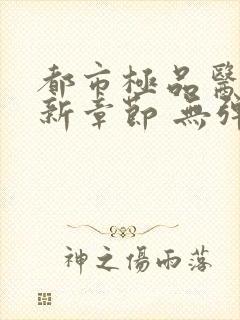 都市極品醫
新章節 無彈
神之傷雨落